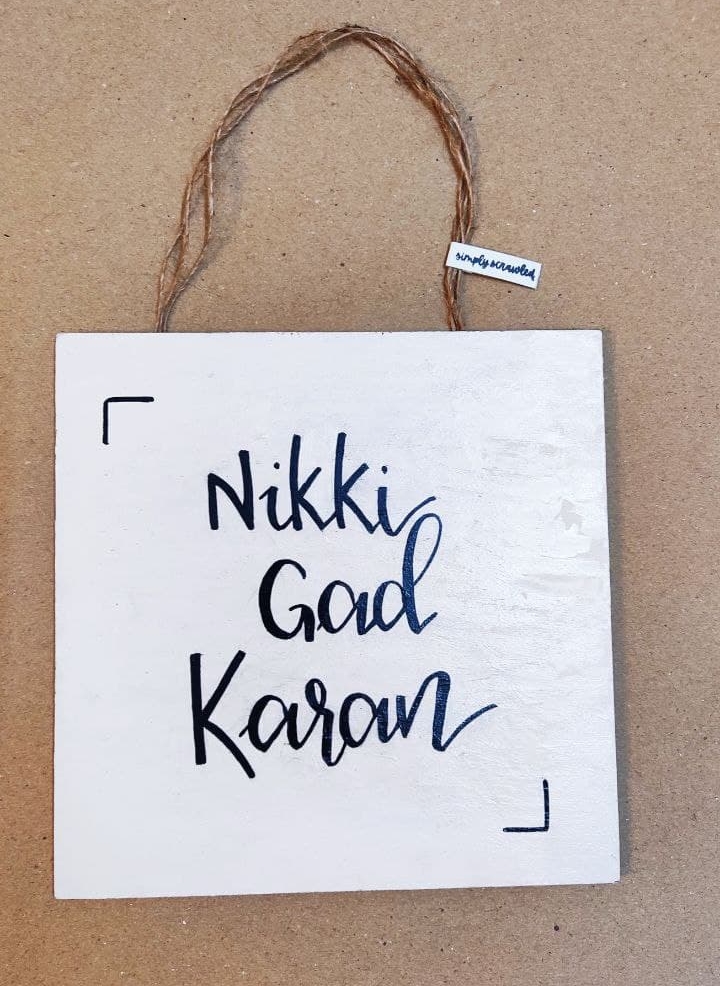 simply scrawled
Nikki
Gad
Karan